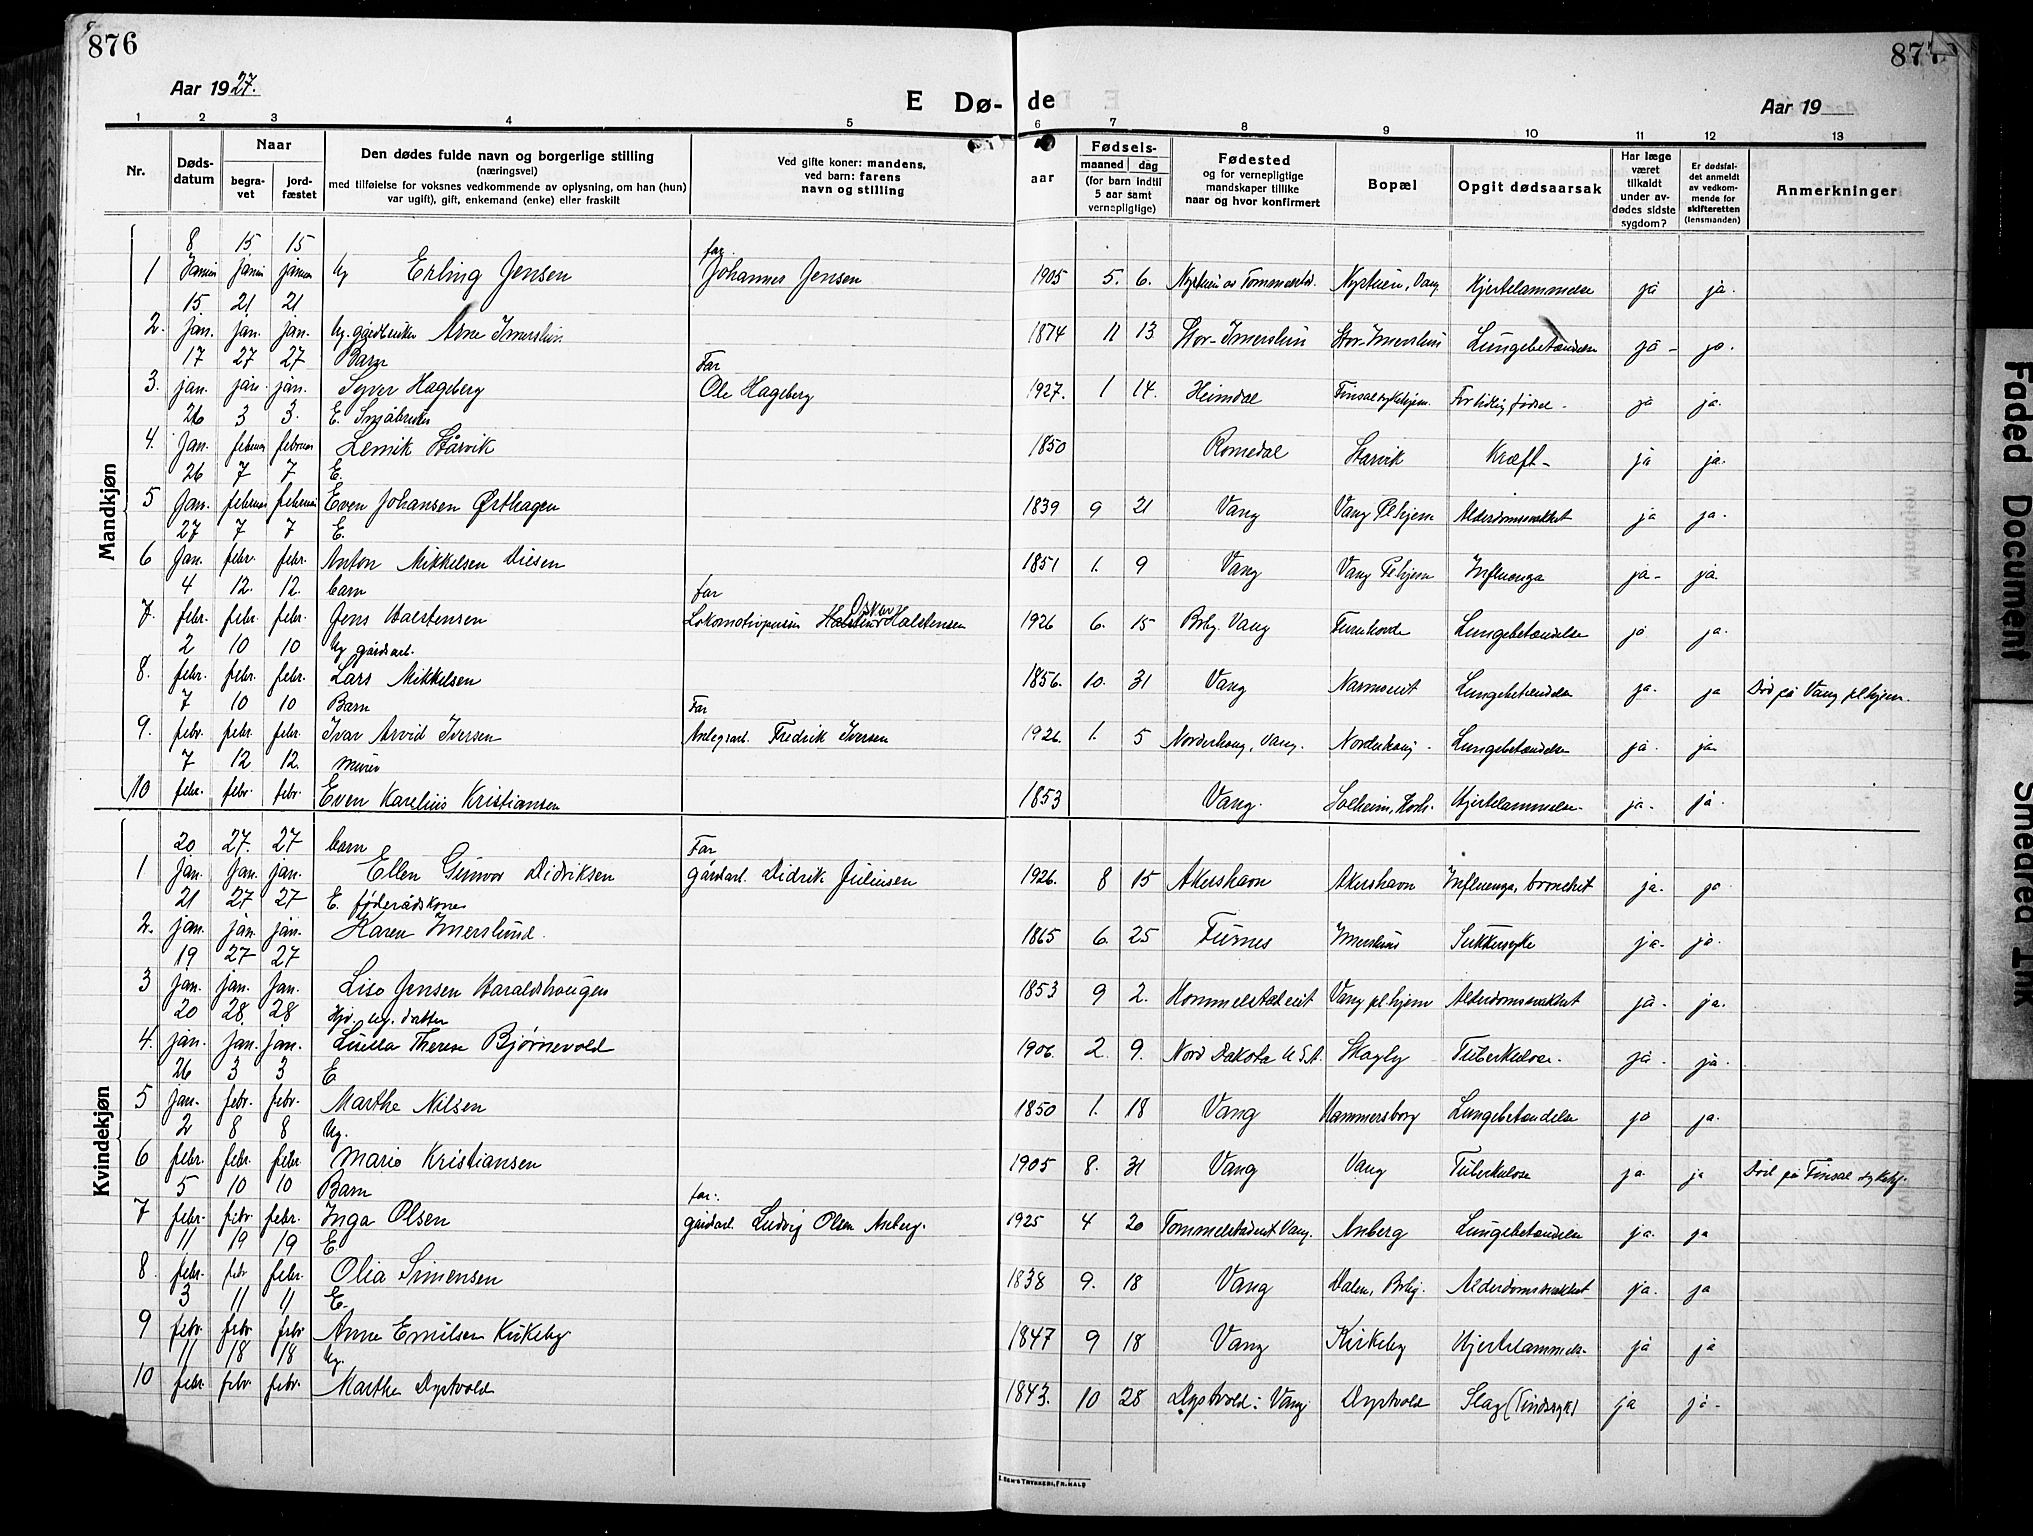 876
877
Aar 1927.
E Dø-
de
Aar 19
1 2 3 4 5 6 7 8 9 10 11 12 13
Nr.
Døds-
datum
Naar
begra-
vet
jord-
fæstet
Den dødes fulde navn og borgerlige stilling
(næringsvei)
med tilføielse for voksnes vedkommende av oplysning, om han (hun)
var ugift), gift, enkemand (enke) eller fraskilt
Ved gifte koner: mandens,
ved barn: farens
navn og stilling
aar
Fødsels-
maaned dag
(for barn indtil
5 aar samt
vernepligtige)
Fødested
og for vernepligtige
mandskaper tillike
naar og hvor konfirmert
Bopæl
Opgit dødsaarsak
Har læge
været
tilkaldt
under av-
dødes sidste
sygdom?
Er dødsfal-
det anmeldt
av vedkom-
mende for
skifteretten
(lensmanden)
Anmerkninger
Mandkjøn
8 15 15 far
1 Ug Erling Jensen Johannes Jensen 1905 5. 6. Nystuen, Vang Hjertelammelse ja ja.
15 21 21
2. jan. jan. jan. Ug. Arne Imerslun 1874 11 13 Stor-Imerslun Stor-Imerslun Lungebetændelse ja - ja.
17 27 27 Barn Far
3. jan. jan. jan. Syver Hageberg Ole Hageberg 1927. 1 14. Heimdal For tidlig fødsel - ja ja.
26 3 3. E. Småbruker
4. Jan. februar februar Stårvik 1850 Romedal Starvik Kræft - ja ja.
26 7 7 E.
5 Jan. februar februar Even Johansen Ørthagen 1839 9 21 Vang Vang Pl hjem Alderdomssvakhet ja ja.
27 7 7 E.
6 Jan. febr. febr. Anton Mikkelsen Dilsen 1851 1. 9 Vang Vang Pl hjem Influenza ja - ja.
4 12. 12. barn far
7. febr. febr. febr. Jens Halstensen Oskar Halstensen 1926 6. 15 Brby. Vang Furukorde Lungebetændelse ja ja.
2 10 10 Ug gårdsarb.
8. febr. febr. febr. Lars Mikkelsen 1856. 10. 31 Vang Lungebetændelse ja. ja Død på Vang pl hjem.
7 10 10 Barn Far
9. febr. febr. febr. Ivar Arvid Iversen Anlegsarb. Fredrik Iversen 1926. 1. 5 Norderhaug, Vang. Norderhaug - Lungebetændelse ja. ja
7 12 12. murer
10 febr. febr. febr. Even Karelius Kristiansen 1853 Vang. Solheim, Hjertelammelse ja. ja.
Kvindekjøn
20 27. 27 barn Far
1 Jan. Jan. jan. Ellen Gunvor Didriksen gårdsarb. Didrik Juliussen 1926. 8 15 Akershavn Akershavn Influenza, bronchit ja. ja
21 27 27 E. føderådskone
2. jan. jan. jan. Karen Imerslund. 1865 6. 25 Furnes Imerslun Sukkersyke ja. ja.
19 27 27
3 jan. jan. Jan. Lise Jensen Haraldshaugen 1853 9 2. Vang pl hjem Alderdomssvakhet ja. ja.
20 28. 28 Hjv. ug. datter
4. jan. jan. jan. Luella Therese Bjørnevold 1906. 2. 9. Nord Dakota U.S.A. Skogly Tuberkulose. ja. ja.
26 3 3 E
5 jan. febr. febr. Marthe Nilsen 1850 1. 18 Vang Hammersborg Lungebetændelse ja ja.
2 8 8 Ug.
6 febr. febr. febr Marie Kristiansen 1905 8. 31 Vang Vang Tuberkulose ja ja Død på Finsal sykehj.
5 10 10 Barn far:
7 febr. febr. febr. Inga Olsen gårdsarb. Ludvig Olsen Anberg. 1925 4 20 Tommelstadeiet Vang. Anberg Lungebetændelse ja. ja
11 19 19 E.
8. febr. febr febr. Olia Simensen 1838 9. 18 Vang Dalen, Brby. Alderdomssvakhet ja. ja
3 11 11 E.
9 febr. febr. febr Anne Emilsen Kirkeby 1847 9 18 Vang Kirkeby Hjertelammelse ja ja
11 18 18 Ug.
10 febr febr. febr. Marthe Dystvold 1843. 10 28 Dystvold: Vang Dystvold Slag (Sindssyk) ja ja.
Faded Document
Smeared Ink